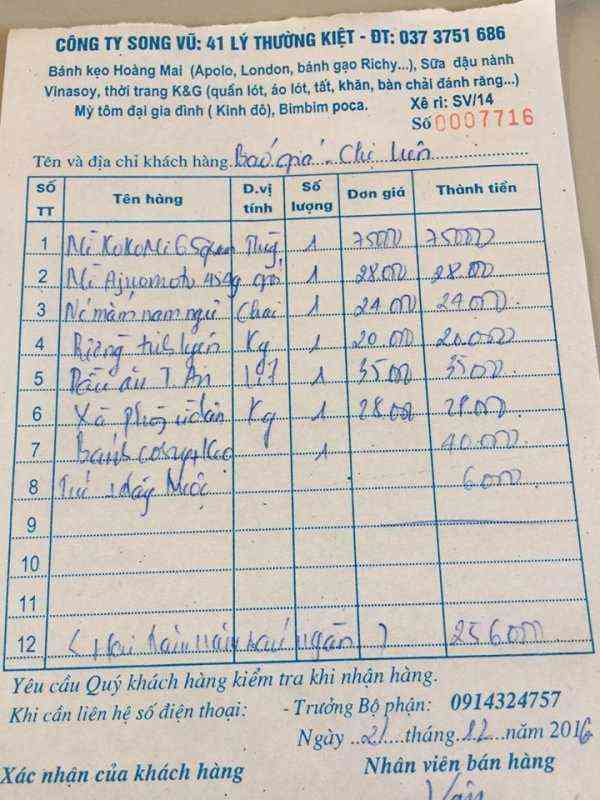 CÔNG TY SONG VŨ: 41 LÝ THƯỜNG KIỆT - ĐT: 037 3751 686
Bánh kẹo Hoàng Mai (Apolo, London, bánh gạo Richy...), Sữa đậu nành
Vinasoy, thời trang K&G (quần lót, áo lót, tất, khăn, bàn chải đánh răng...)
Mỳ tôm đại gia đình ( Kinh đô), Bimbim poca.
Xê ri: SV/14
Số 0007716
Tên và địa chỉ khách hàng. Báo giá - Chị
SỐ TT Tên hàng Đ.vị tính Số lượng Đơn giá Thành tiền
1 Mì KoKoMi 1 75000 75000
2 Mì Ajinomoto 454g gói 1 28.000 28.000
3 mắm nam ngư Chai 1 24.000 24.000
4 Kg 1 20.000 20.000
5 Dầu ăn T. An 1 35.000 35.000
6 Xà phòng Kg 1 28.000 28.000
7 Bánh cosy + Kẹo 1 40.000
8 6000
9
10
11
12 ( Hai trăm năm sáu ngàn ) 256000
Yêu cầu Quý khách hàng kiểm tra khi nhận hàng.
Khi cần liên hệ số điện thoại: - Trưởng Bộ phận: 0914324757
Ngày 21 tháng 12 năm 2016
Xác nhận của khách hàng Nhân viên bán hàng